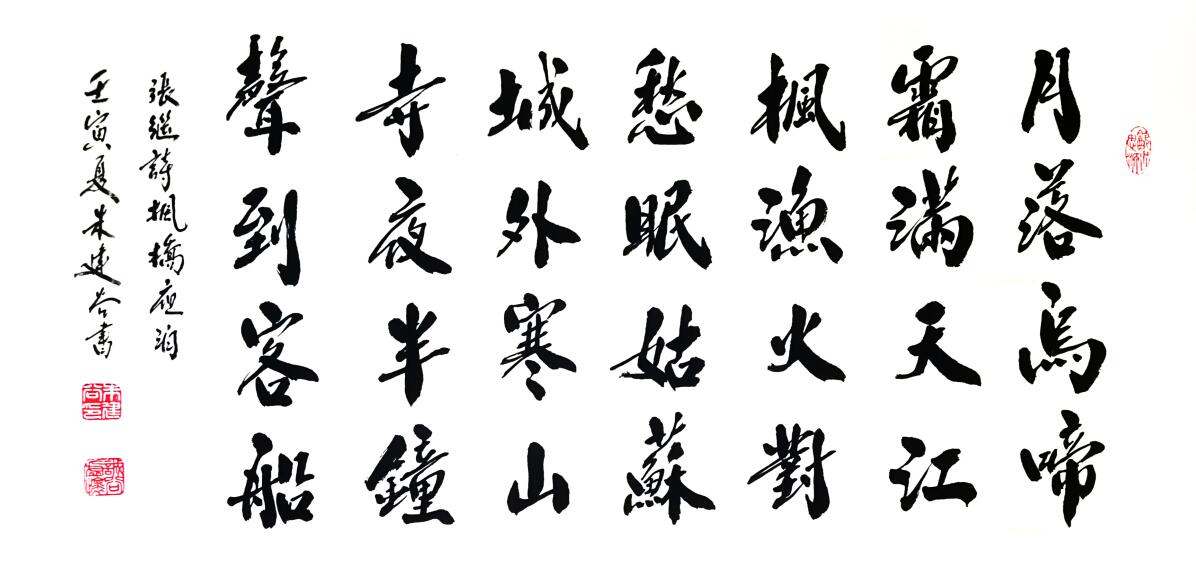 月落烏啼
霜滿天江
楓漁火對
愁眠姑蘇
城外寒山
寺夜半鐘
聲到客船
張继詩楓橋夜泊
壬寅夏朱建谷書